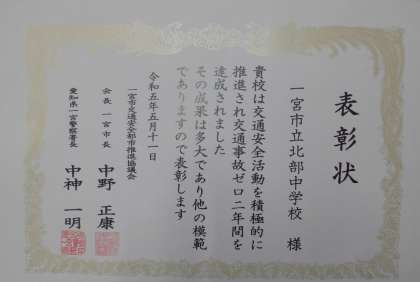 表彰状
一宮市立北部中学校　様
貴校は交通安全活動を積極的に
推進され交通事故ゼロ二年間を
達成されました
その成果は多大であり他の模範
でありますので表彰します
令和五年五月十一日
一宮市交通安全都市推進協議会
会長　一宮市長　中野　正康
愛知県一宮警察署長　中神　一明